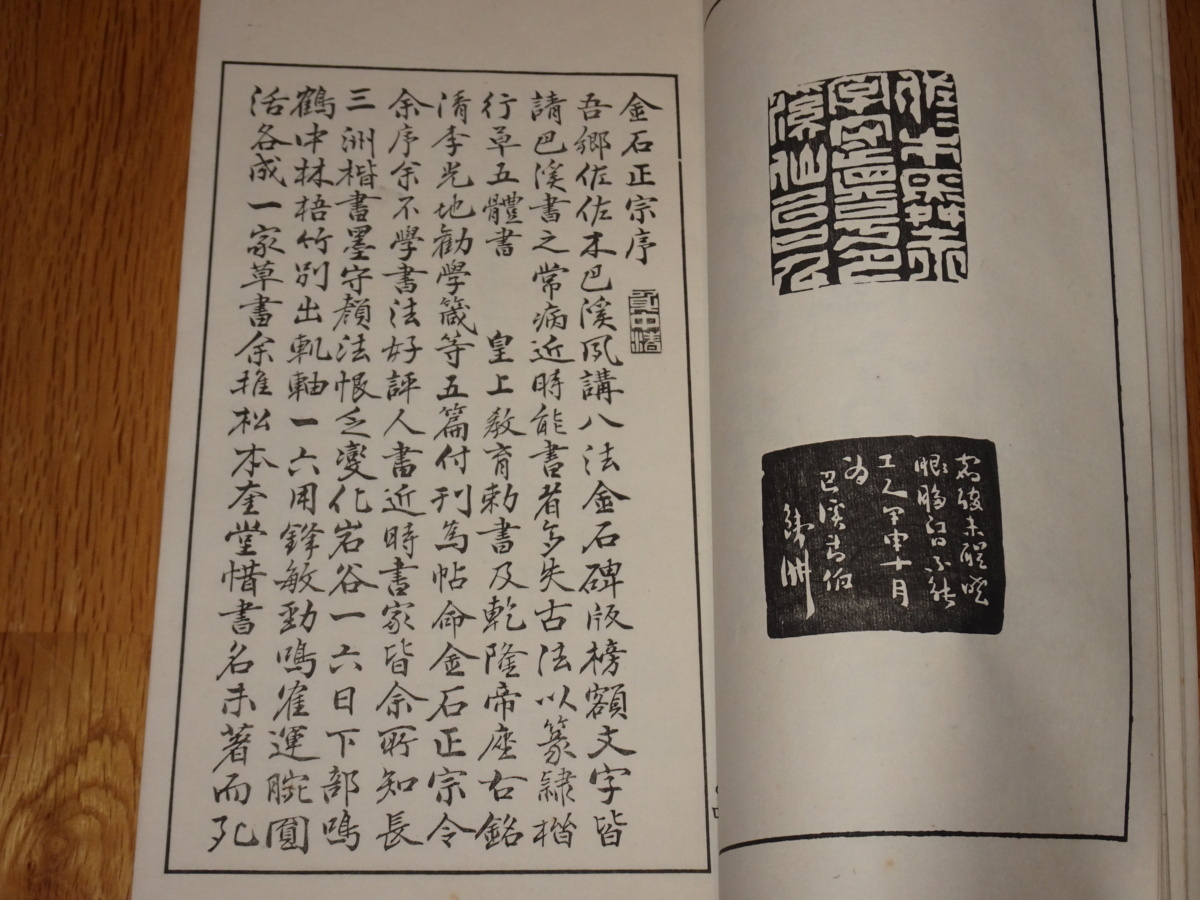 工之甲申十月
為
巴溪書伯
金石正宗序
吾鄉佐佐木巴溪夙講八法金石碑版榜額文字皆
請巴溪書之常病近時能書者多失古法以篆隷楷
行草五體書 皇上教育勅書及乾隆帝座右銘
清李光地勸學箴等五篇付刊為帖命金石正宗令
余序余不學書法好評人書近時書家皆余所知長
三洲楷書墨守顏法恨乏變化岩谷一六日下部鳴
鶴中林梧竹別出軋軸一六用鋒敏勁鳴雀運腕圓
活各成一家草書余推松本奎堂惜書名未著而死